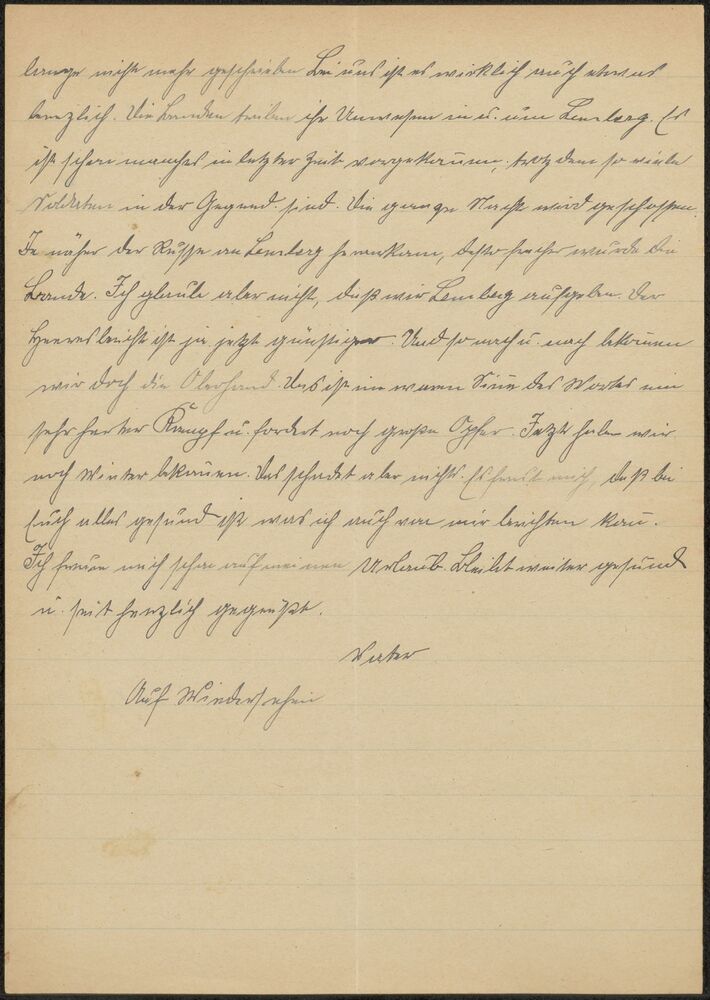 lange nicht mehr geschrieben Bei uns ist es wirklich auch etwas
brenzlich. Die Banden treiben ihr Unwesen in u. um Lemberg. Es
ist schon manches in letzter Zeit vorgekommen, trotzdem so viele
Soldaten in der Gegend sind. Die ganze Nacht wird geschossen.
Je näher der Russe an Lemberg herankam, desto frecher wurde die
Bande. Ich glaube aber nicht, daß wir Lemberg aufgeben. Der
Heeresbericht ist ja jetzt günstiger. Und so nach u. nach bekommen
wir doch die Oberhand. Das ist im waren Sinne des Wortes ein
sehr harter Kampf u. fordert noch große Opfer. Jetzt haben wir
noch Winter bekommen. Das schadet aber nichts. Es freut mich, daß bei
Euch alles gesund ist was ich auch von mir berichten kann.
Ich freue mich schon auf meinen Urlaub. Bleibt weiter gesund
u. seit herzlich gegrüßt.
Vater
Auf Wiedersehen